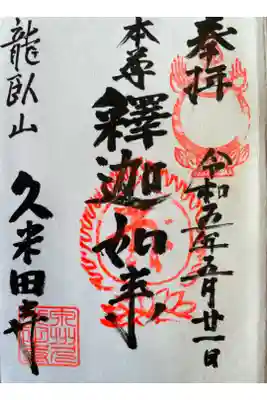 奉拝
令和五年五月廿一日
本尊
釋迦如来
龍臥山
久米田寺